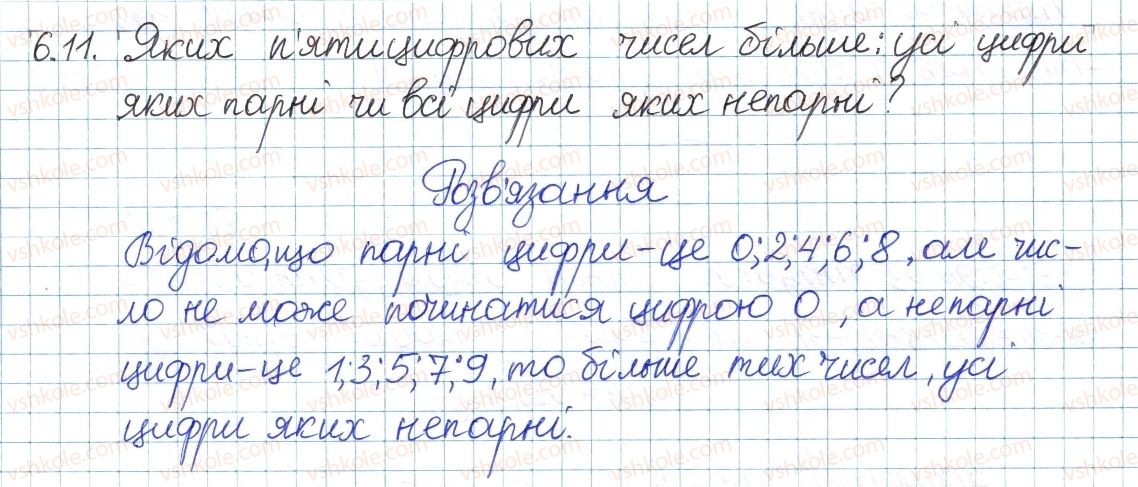 6.11. Яких п'ятицифрових чисел більше: усі цифри
яких парні чи всі цифри яких непарні?
Розв'язання
Відомо,що парні цифри-це 0;2;4;6;8, але чис-
ло не може починатися цифрою 0, а непарні
цифри-це 1;3;5;7;9, то більше тих чисел, усі
цифри яких непарні.